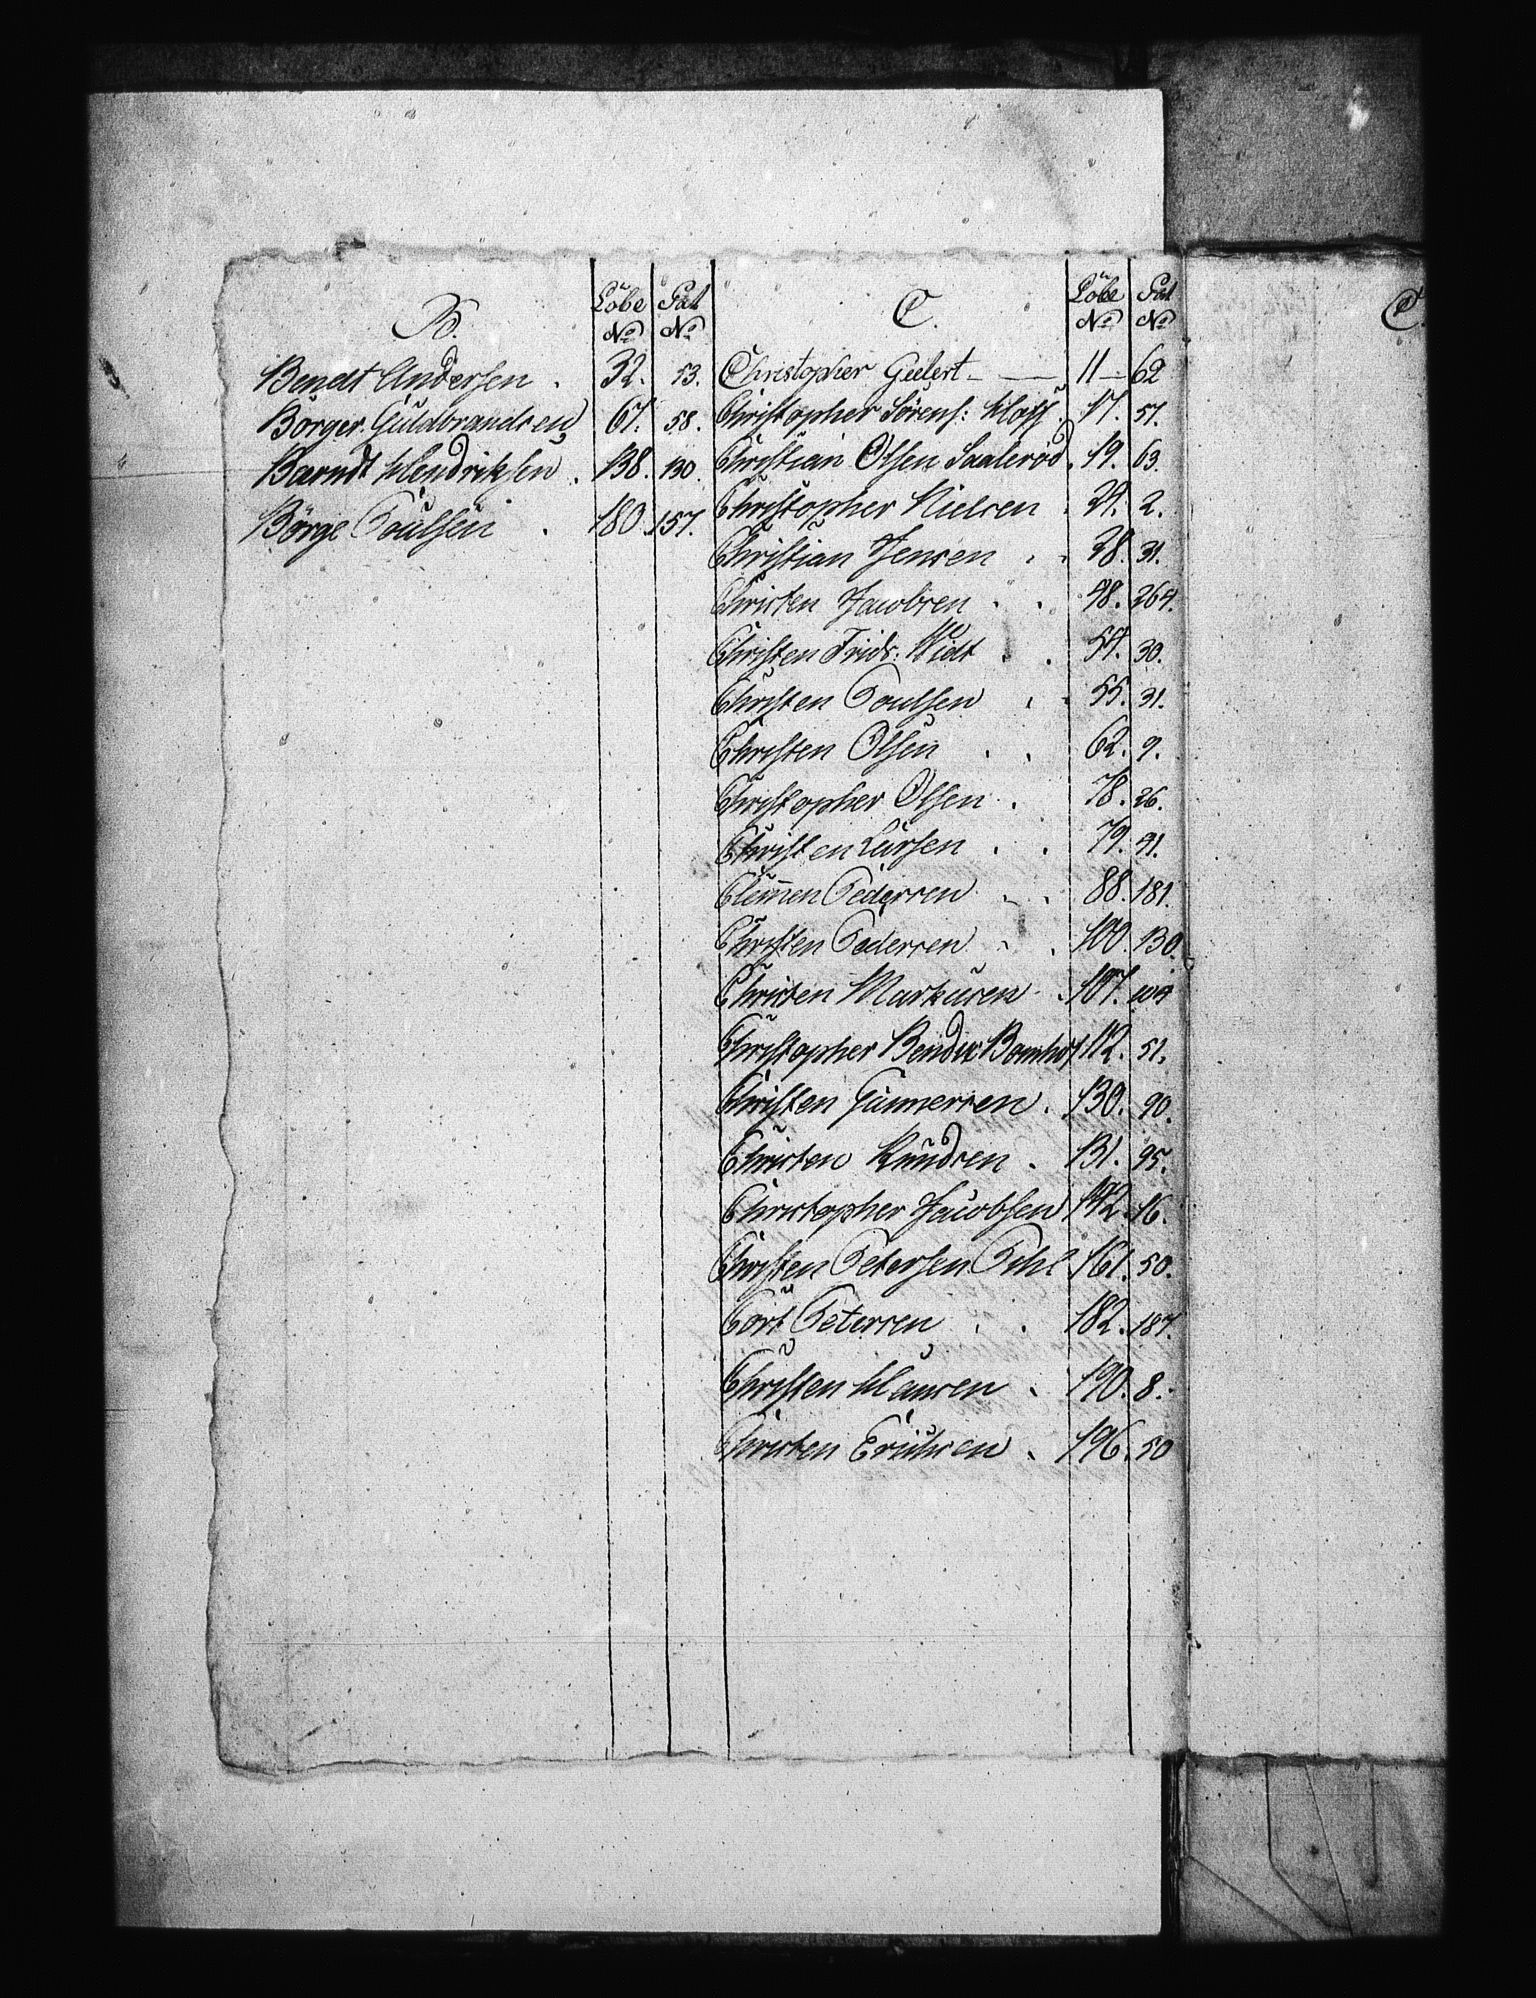 B. Löbe No Pat No
Bendt Andersen . 32. 53.
Börger Guldbrandsen 67. 58.
Barndt Hendriksen . 138. 130.
Börge Poulsen . 180. 157.
C. Löbe No Pat No
Christopher Geelert 11 62
Christopher Sörens: 17. 57.
Christian Olsen Saaleröd . 19. 63.
Christopher Nielsen . 24. 2.
Christian Jensen . . 38. 31.
Christen Jacobsen . . 48. 264.
Christen Frids: Widt . . 54. 30.
Christen Poulsen . . 55. 31.
Christen Olsen . . 62. 9.
Christopher Olsen . 78. 26.
Christen Larsen . . 79. 41.
Clemen Pedersen . . 88. 181.
Christen Pedersen . . 100. 130.
Christen Markusen . 107. 104
Christopher Bendix Bomhof 112. 51.
Christen Gunnersen . 130. 90.
Christen Knudsen . 131. 95.
Christopher Jacobsen 142. 16.
Christen Petersen Pihl 161. 50.
Cort Petersen . . 182. 187.
Christen Hansen . 190. 8.
Christen Erichsen . 196. 50
C.